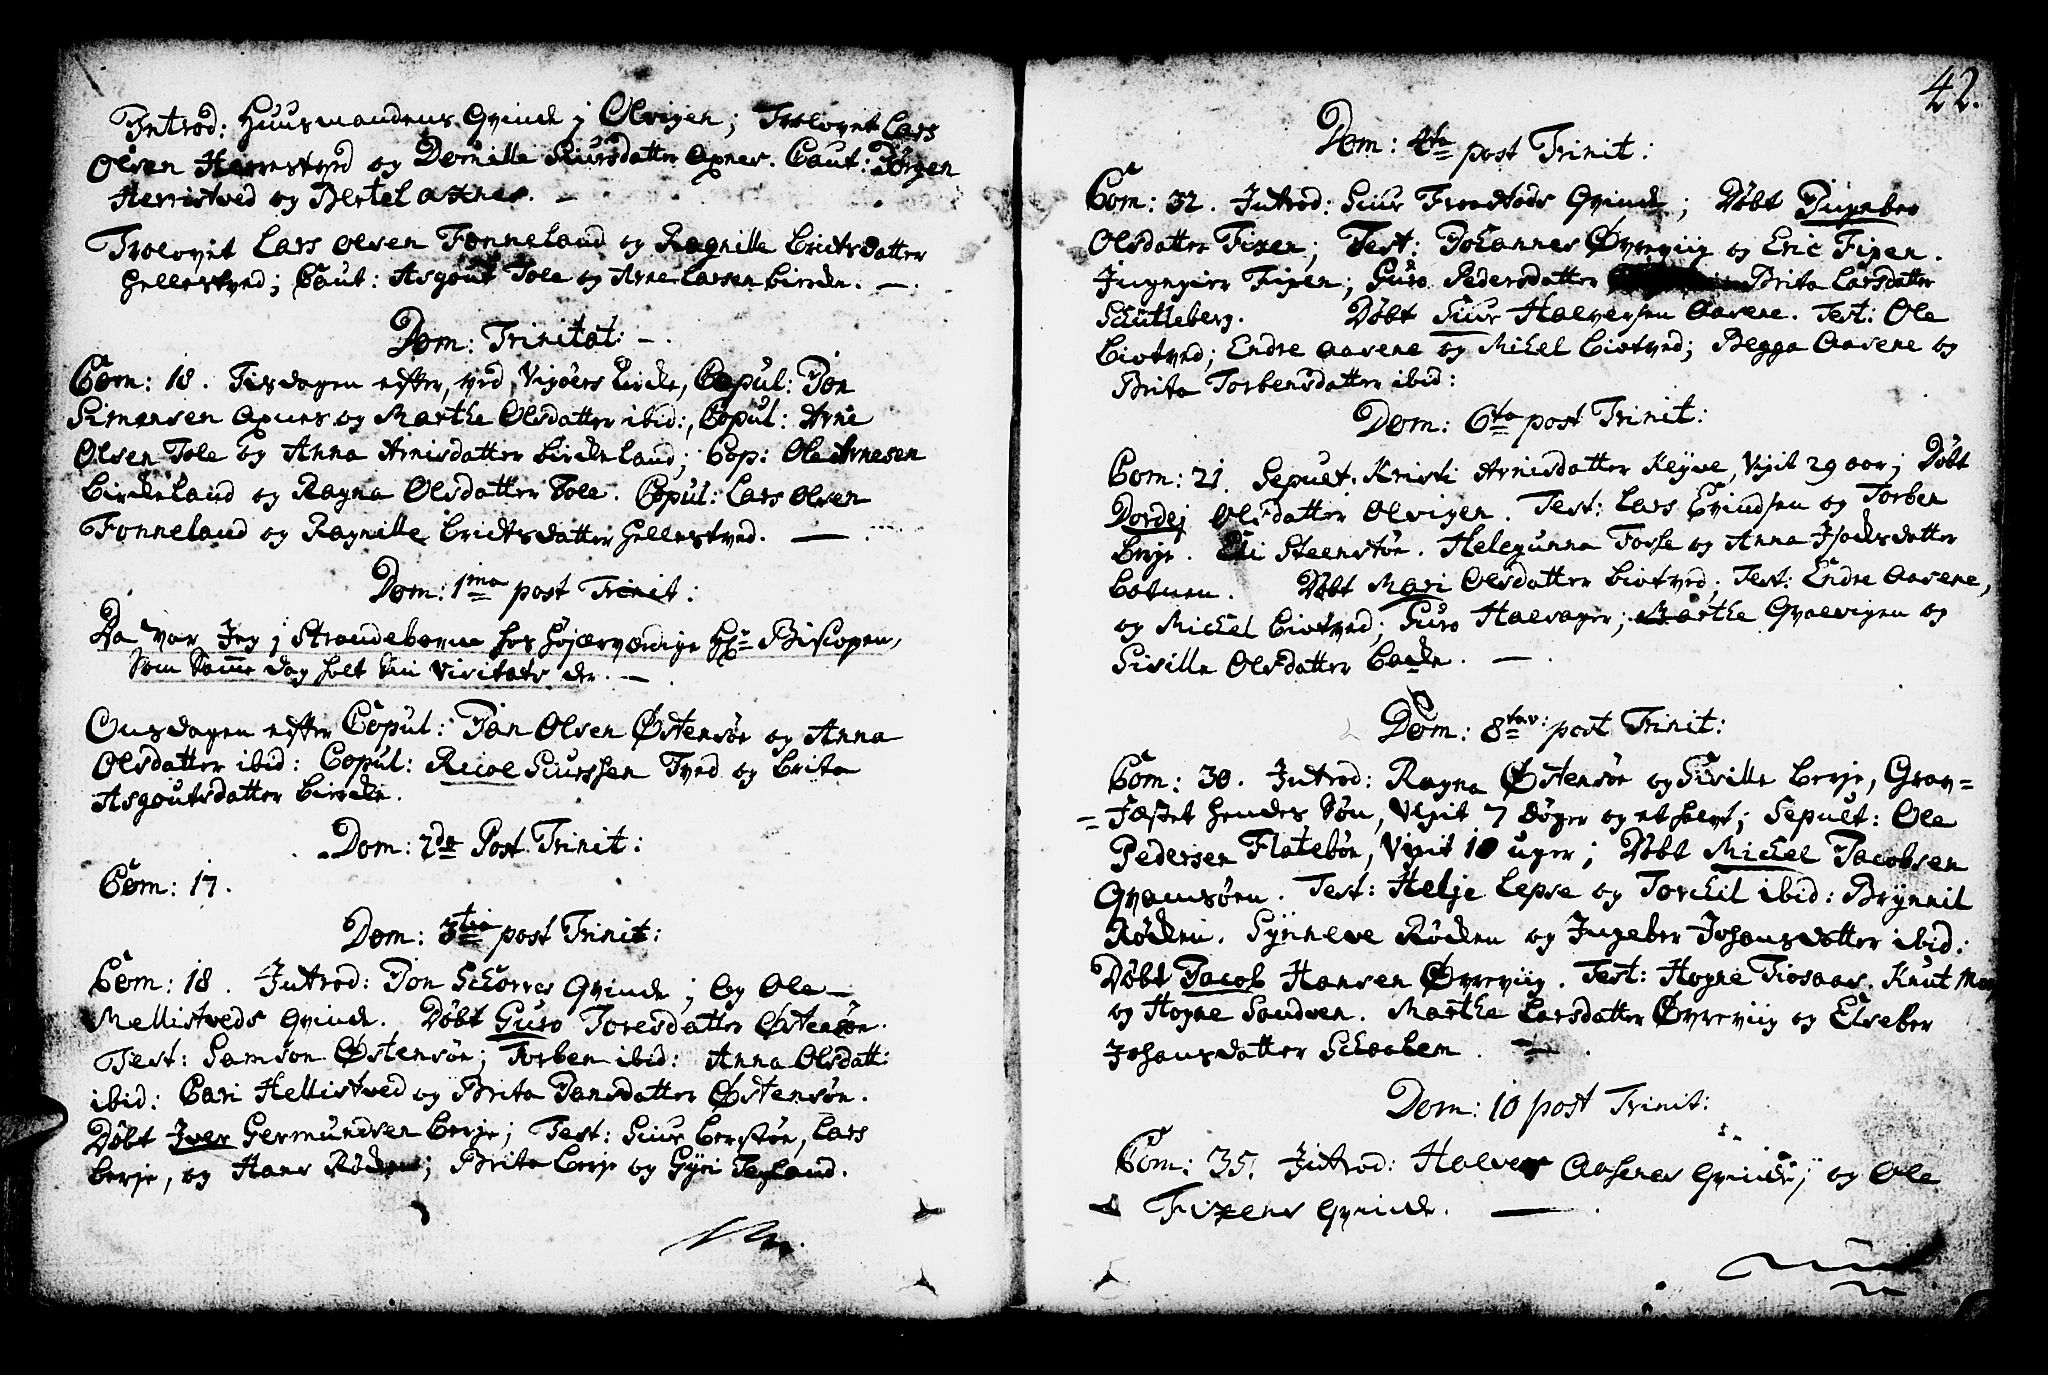 Introd: Huusmandens Qvinde j Olvigen; Trolovet Lars
Olsen Herrestved og Dornille Siursdatter Axnes. Caut: Jørgen
Herristved og Bertel axnes. –
Trolovet Lars olsen Fonneland og Ragnille Ericksdatter
Hellestved; Caut: Asgout Tole og Arne Larsen Bircke. –.
Dom: Trinitat: –.
Com: 18. Tisdagen efter, ved Vigøers Kircke, Copul: Jon
Simensen Axnes og Marthe Olsdatter ibid:, Copul: Arne
Olsen Tole og Anna Arnisdatter Birckeland; Cop: Ole Arnesen
Birckeland og Ragna Olsdatter Tole. Copul: Lars olsen
Fonneland og Ragnille Ericksdatter Hellestved. —.
Dom: 1ma post Trinit:
Da var Jeg j Strandebarm hos højærværdige Hr Biscopen,
som samme dag holt sin Visitats der. –
Onsdagen efter Copul: Jan Olsen Østensøe og Anna
Olsdatter ibid: Copul: Siurssen Tved og Brita
Asgoutsdatter Bircke.
Dom: 2de Post Trinit:
Com: 17.
Dom: 3tia post Trinit:
Com: 18. Introd: Jon Schorres Qvinde; og Ole
Mellistveds Qvinde. Døbt Guro Toresdatter Østensøe.
Test: Samson Østensøe; Torben ibid: Anna Olsdatt:
ibid: Cari Hellistved og Brita Jansdatter Østensøe.
Døbt Iver Germundsen Berje; Test: Siur Berstøe, Lars
Berje, og Hans Røcken; Brita Berje og Gyri Tesland.
42.
Dom: 4ta post Trinit:
Com: 32. Introd: Siur Trods Qvinde; Døbt Ingebor
Olsdatter Fixen; Test: Johannes Øvreviig og Eric Fixen.
Fixen; Guro Pedersdatter Brita Larsdatter
Schutleberg. Døbt Siur Halversen Aasene. Test: Ole
Biotved; Endre Aasene og Michel Biotved; Begga Aasene og
Brita Torbensdatter ibid:
Dom: 6ta post Trinit:
Com: 21. Sepult: Kristi Arnisdatter Keyve, Vixit 29 aar; Døbt
Dordej Olsdatter Olvigen. Test: Lars Evindsen og Torben
Berje. Eli Steenstøe. Helegunna Fosse og Anna Isacksdatter
Botnen. Døbt Mari Olsdatter Biotved; Test: Endre Aasene,
og Michel Biotved; Guro Halvager; Marthe Qvalvigen og
Sisille Olsdatter Backe. –.
Dom: 8tav: post Trinit:
Com: 30. Introd: Ragna Østensøe og Sisille Berje, Grav-
-fæstet hendes Søn, Vixit 7 døger og et halvt; Sepult: Ole
Pedersen Flatebøe, Vixit 10 uger; Døbt Michel Jacobsen
Qvamsøen. Test: Helje Lepse og Torchil ibid: Brynnil
Røcken. Synneve Røcken og Ingebor Johansdatter ibid:
Døbt Jacob Hansen Øvreviig. Test: Hogne Tiosaas. Knut
og Hogne Sandven. Marthe Larsdatter Øvreviig og Elseber
Johansdatter Schaalem. –.
Dom: 10 post Trinit:
Com: 35. Introd: Halver Aasenes Qvinde; og Ole
Fixens Qvinde. —.